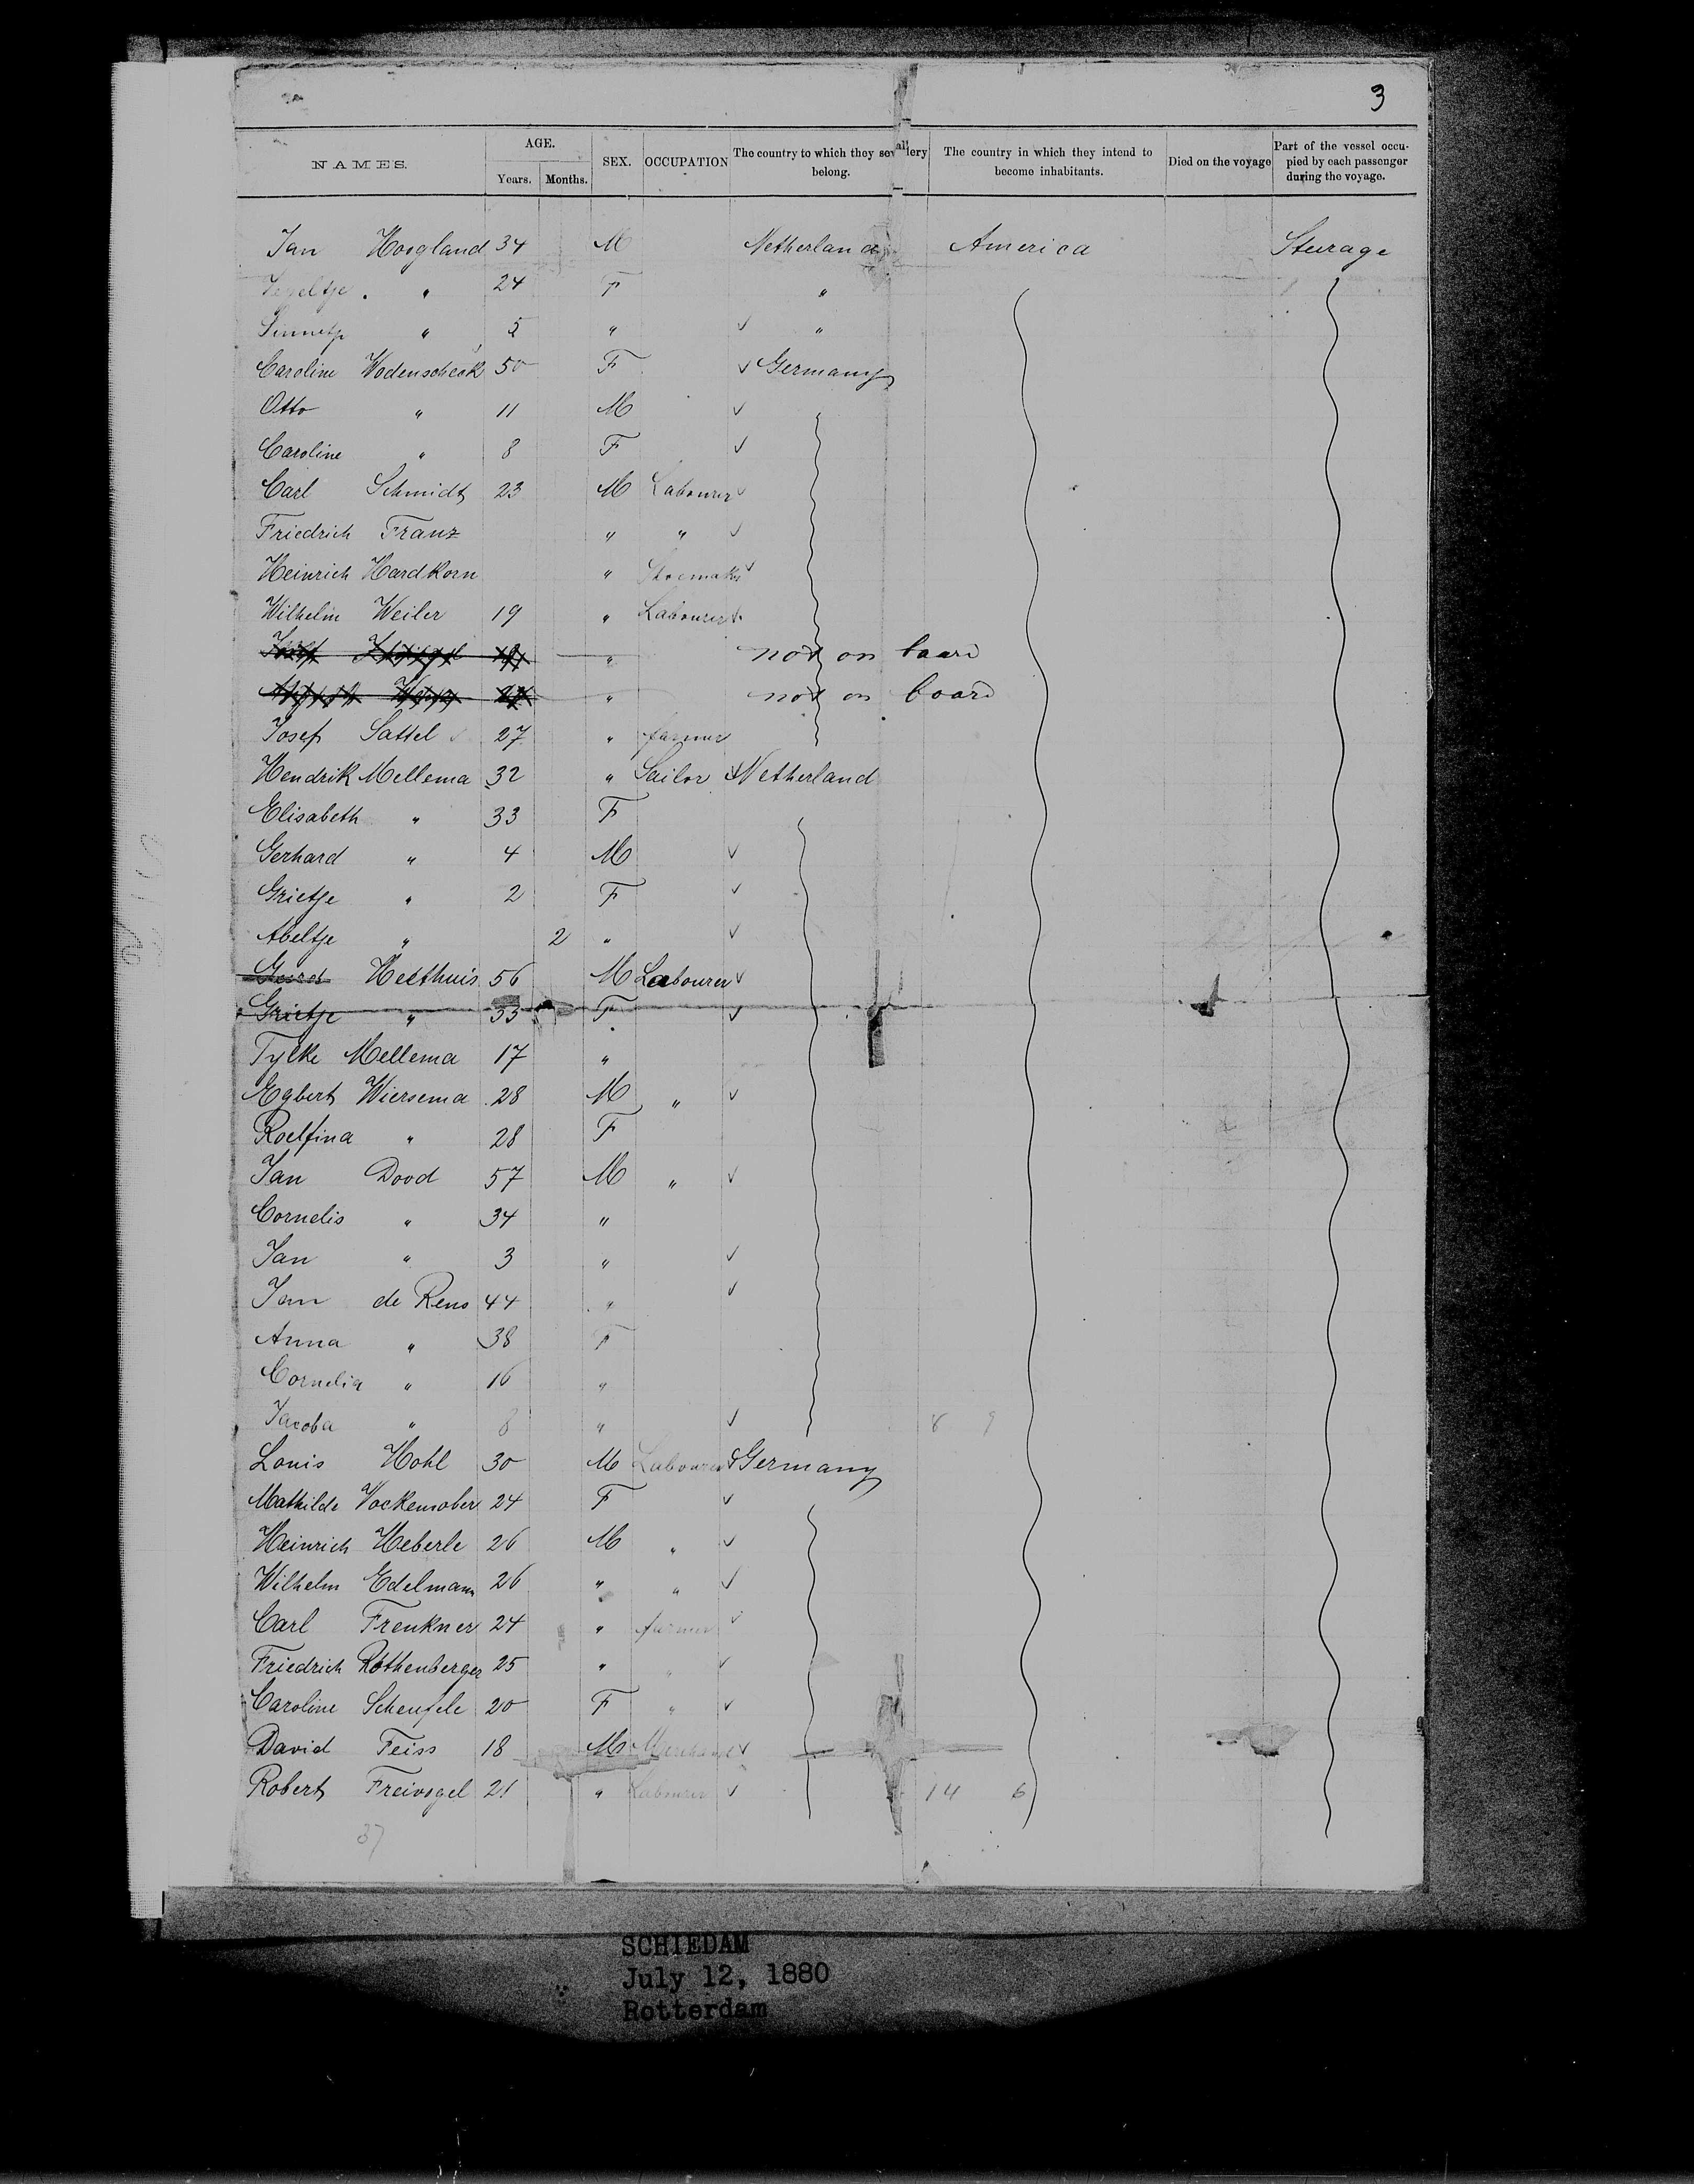 3
NAMES. AGE. Years. Months. SEX. OCCUPATION The country to which they severally belong. The country in which they intend to become inhabitants. Died on the voyage Part of the vessel occupied by each passenger during the voyage.
Jan Hoogland 34 M Netherland America Steurage
" 24 F "
" 5 " ✓ "
Caroline Wodenscheck 50 F ✓ Germany
Otto " 11 M ✓
Caroline " 8 F ✓
Carl Schmidt 23 M Labourer ✓
Friedrich Franz " " ✓
Heinrich Hardkorn " Shoemaker ✓
Wilhelm Weiler 19 " Labourer ✓
" not on board
" not on board
Josef Sattel 27 " farmer
Hendrik Mellema 32 " Sailor ✓ Netherland
Elisabeth " 33 F
Gerhard " 4 M ✓
Grietje " 2 F ✓
Abeltje " 2 " ✓
Heethuis 56 M Labourer ✓
Grietje " 53 F ✓
Tylke Mellema 17 "
Egbert Wiersema 28 M " ✓
Roelfina " 28 F
Jan Dood 57 M " ✓
Cornelis " 34 "
Jan " 3 " ✓
Jan de Rens 44 " ✓
Anna " 38 F
Cornelia " 16 "
Jacoba " 8 " ✓ 8 9
Louis Hohl 30 M Labourer ✓ Germany
Mathilde Vockensober 24 F ✓
Heinrich Heberle 26 M " ✓
Wilhelm Edelmann 26 " " ✓
Carl Frenkner 24 " farmer ✓
Friedrich Rothenberger 25 " " ✓
Caroline Scheufele 20 F " ✓
David Feiss 18 M Merchant ✓
Robert Freivogel 21 " Labourer ✓ 14 6
37
SCHIEDAM
July 12, 1880
Rotterdam